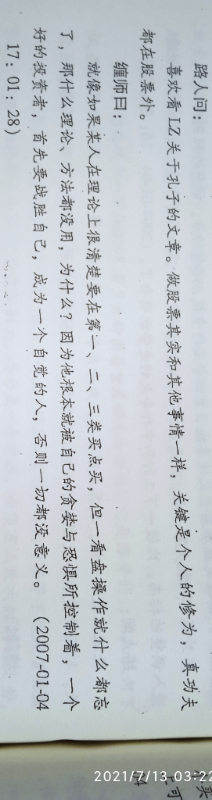 路人问：
喜欢看LZ关于孔子的文章。做股票其实和其他事情一样，关键是个人的修为，真功夫
都在股票外。
缠师曰：
就像如果某人在理论上很清楚要在第一、二、三类买点买，但一看盘操作就什么都忘
了，那什么理论、方法都没用，为什么？因为他根本就被自己的贪婪与恐惧所控制着，一个
好的投资者，首先要战胜自己，成为一个自觉的人，否则一切都没意义。（2007-01-04
17：01：28）
2021/7/13 03:22